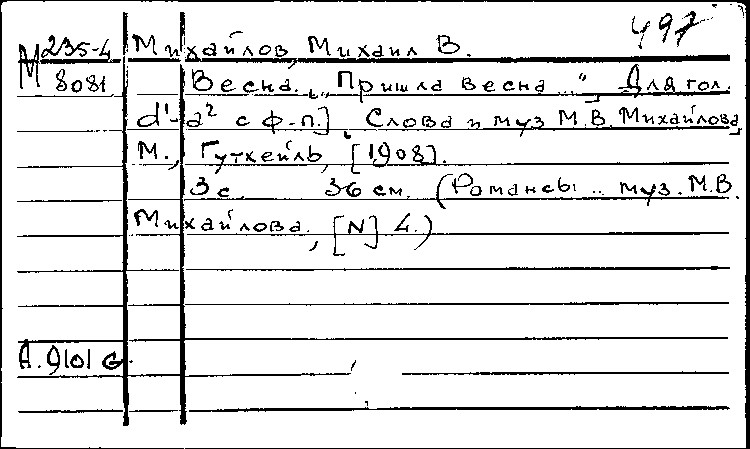 497
М 235-4 Михайлов, Михаил В.
8081 Весна. „Пришла весна ...“ [Для гол.
d¹-a² с ф-п.]. Слова и муз М.В. Михайлова
М., Гутхейль, [1908].
3 с. 36 см. (Романсы .. муз. М.В.
Михайлова., [N] 4.)
A. 9101 G